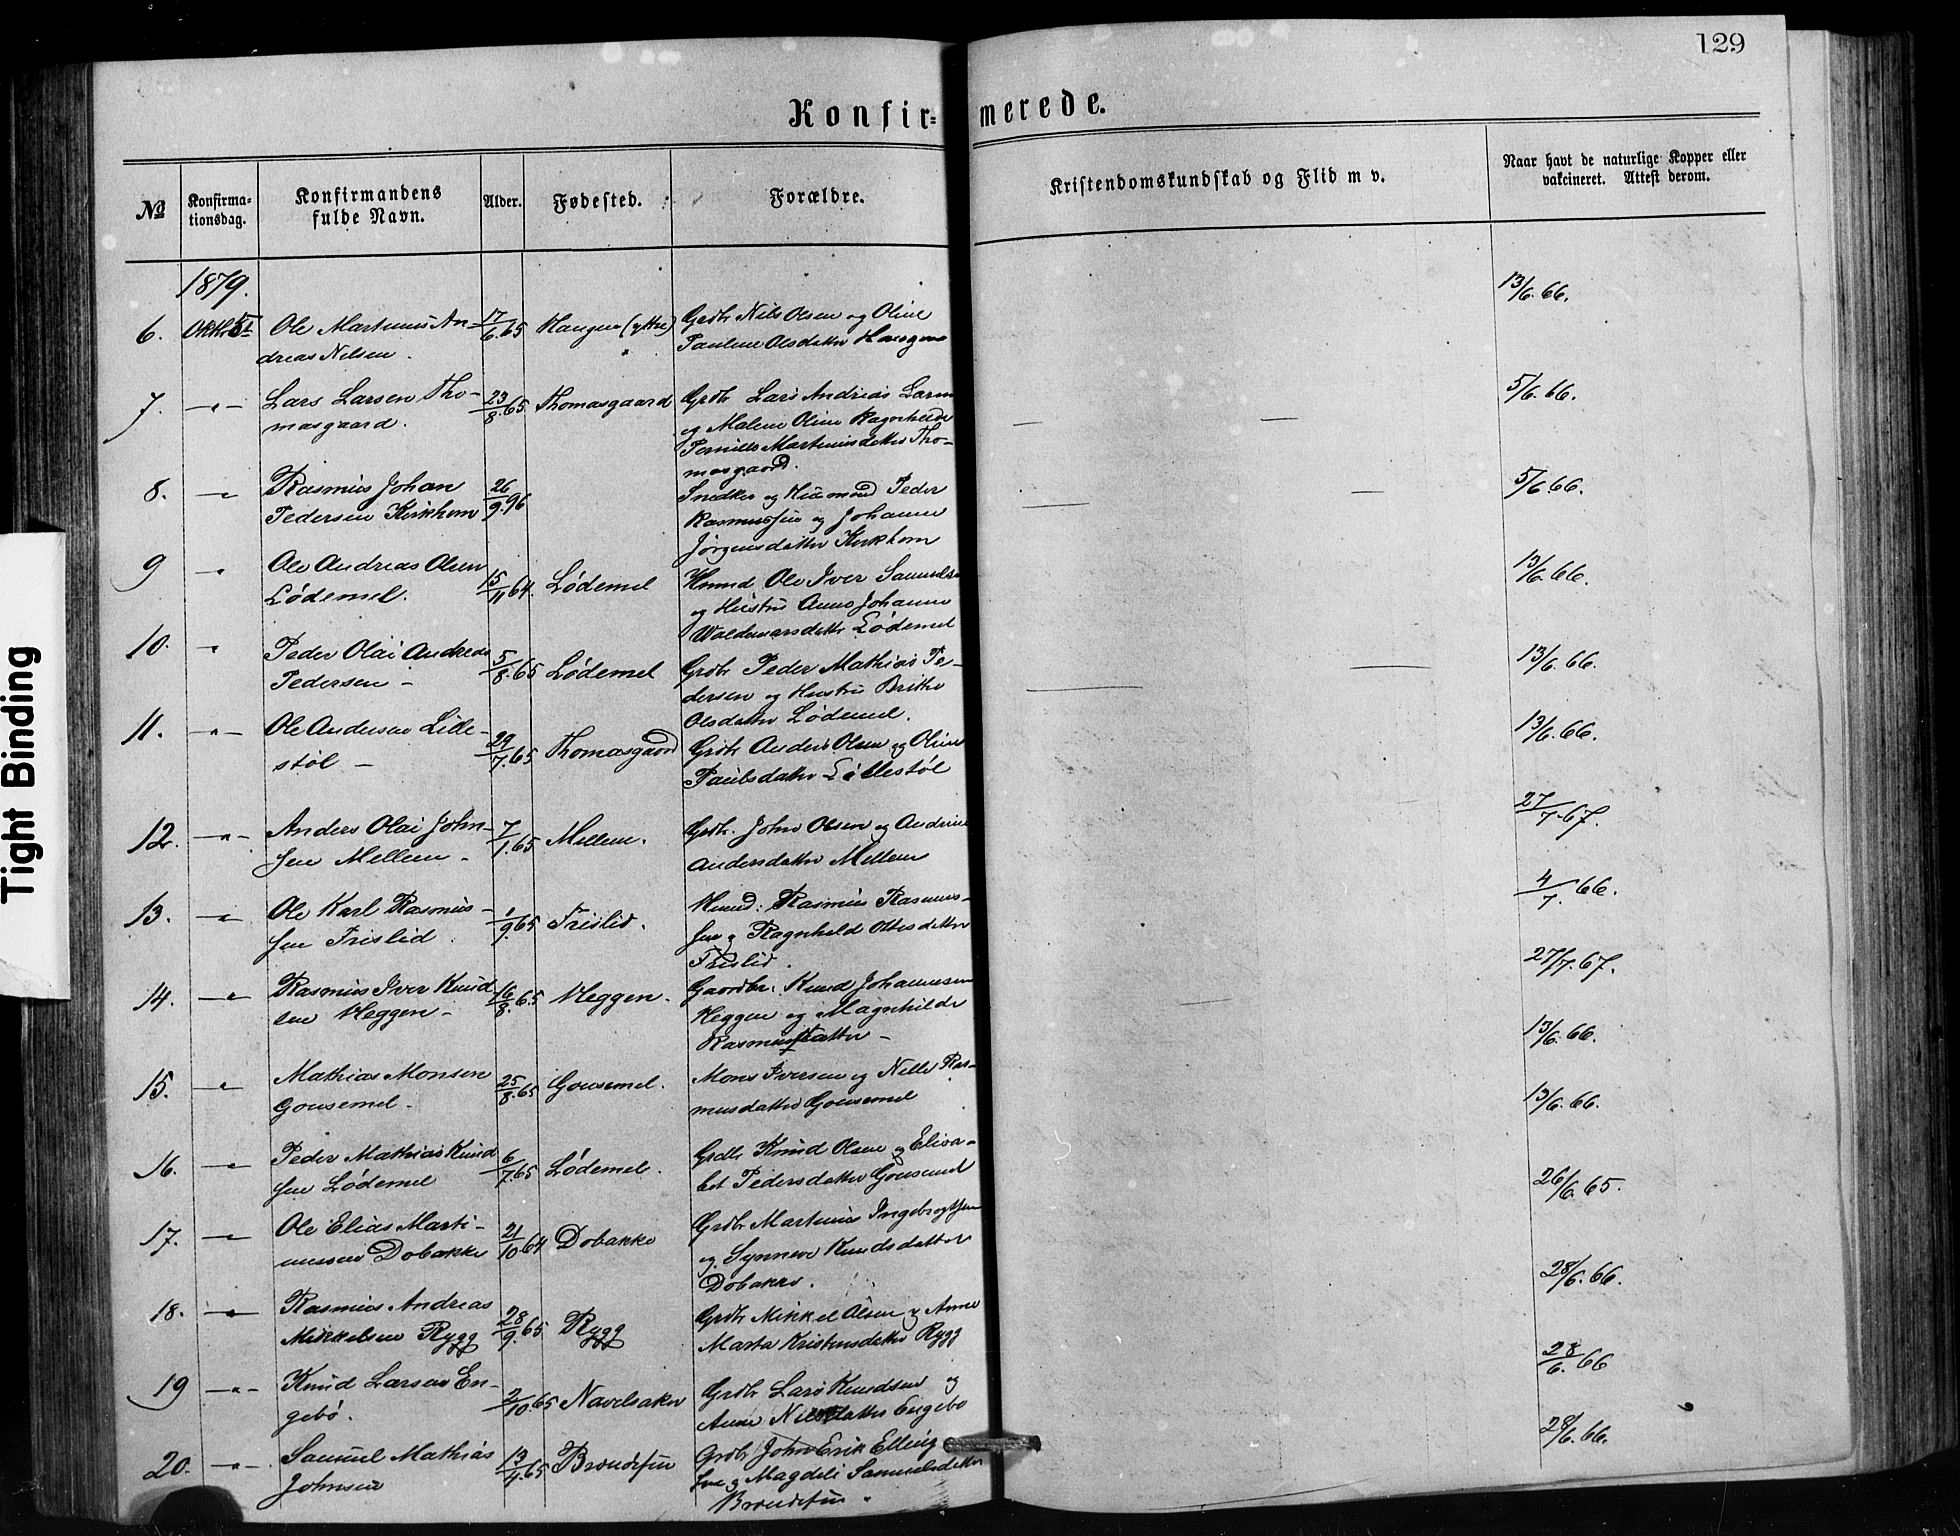 129
Konfir= merede.
№
Konfirma-
tionsdag.
Konfirmandens
fulde Navn.
Alder.
Fødested.
Forældre.
Kristendomskundskab og Flid m v.
Naar havt de naturlige Kopper eller
vakcineret. Attest derom.
1879.
6. Oktbr. 5te Ole Martinus An- 17/6.65 Haugen (yttre) Grdbr Nils Olsen og Oline 13/6.66.
dreas Nelsen. Pauline Olsdatter Haugen
7. -"- Lars Larsen Tho- 23/8.65 Thomasgaard Grdbr Lars Andreas Larsen 5/6.66.
masgaard. og Malene Oline Ragnhilde
Pernille Martinusdatter Tho-
masgaard.
8. -"- Rasmus Johan 26/9.96 Snedker og Husmand Peder 5/6.66.
Pedersen Kirkhorn Rasmussen og Johanne
Jørgensdatter Kirkhorn
9 " Ole Andreas Olsen 15/11 64. Lødemel Hmnd Ole Iver Samuelsen 13/6.66.
Lødemel. og Hustru Anne Johanne
Waldemarsdatter Lødemel
10. " Peder Olai Andreas 5/8.65 Lødemel Grdbr Peder Mathias Pe- 13/6.66.
Pedersen - dersen og Hustru Brithe
Olsdatter Lødemel.
11. -"- Ole Andersen Lille- 29/7.65 Thomasgaard Grdbr Anders Olsen og Oline 13/6.66.
støl - Paulsdatter Lillestøl
12. -"- Anders Olai John- 7/1.65 Mellem. Grdbr. John Olsen og Andrine 27/7.67.
sen Mellem - Andersdatter Mellem
13. -"- Ole Karl Rasmus- 1/9.65 Frislid. Hmnd: Rasmus Rasmus- 4/7.66.
sen Frislid. sen og Ragnhild Olsdatter
Frislid.
14. -"- Rasmus Iver Knud 16/8.65 Heggen. Gaardbr. Knud Johannesen 27/7.67.
sen Heggen - Heggen og Magnhilde
Rasmusdatter -
15. -"- Mathias Monsen 25/8.65 Gousemel. Mons Iversen og Nelle Ras- 13/6.66.
Gousemel - musdatter Gousemel 13/6.66.
16. -"- Peder Mathias Knud 6/7.65 Lødemel. Grdbr Knud Olsen og Elisa-
sen Lødemel bet Pedersdatter Gousemel 26/6.65.
17. -"- Ole Elias Marti- 21/10 64 Dobakke Grdbr Martinus Ingebrigtsen
nussen Dobakke og Synneve Knudsdatter
Dobakke. 28/6.66.
18. -"- Rasmus Andreas 28/9.65 Rygg Grdbr Mikkel Olsen og Anne
Mikkelsen Rygg Marta Kristensdatter Rygg 28/6.66
19 -"- Knud Larsen En- 2/10.65 Navelsaker Grdbr Lars Knudsen og
gebø. Anne Nilsdatter Engebø 28/6.66.
20. -"- Samuel Mathias 13/4.65 Brændefur Grdbr John Erik Elling
Johnsen sen og Magdeli Samuelsdatter
Brændefur.
Tight Binding